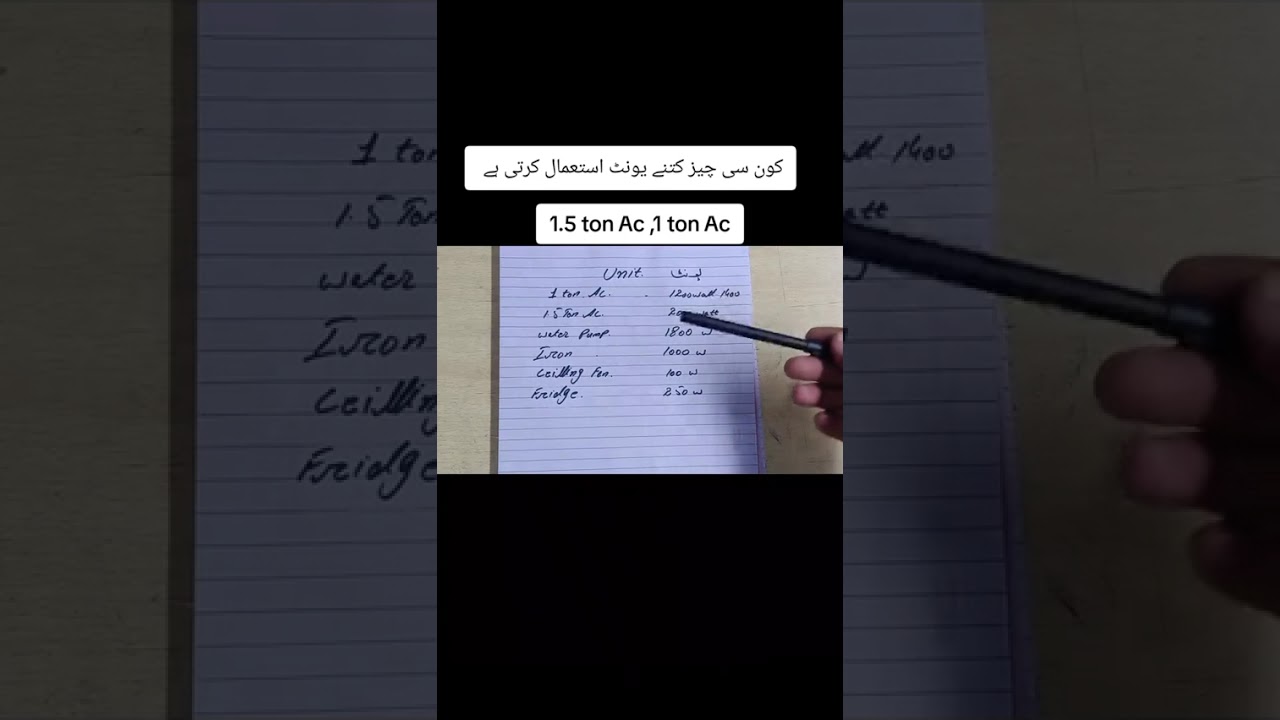 کون سی چیز کتنے یونٹ استعمال کرتی ہے
1.5 ton Ac ,1 ton Ac
Unit. یونٹ
1 ton Ac. 1200 watt 1400
1.5 Ton Ac.
water Pump. 1800 w
Iron 1000 w
Ceilling Fan. 100 w
Freidge. 250 w